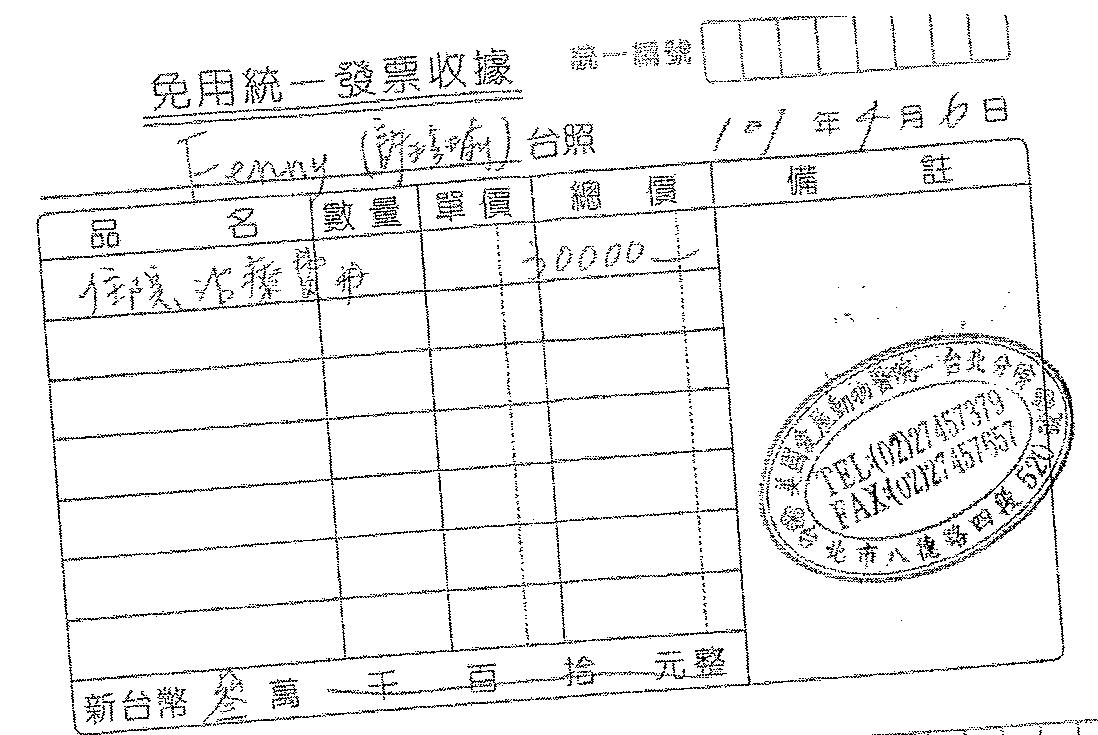 統一編號
免用統一發票收據
Fenny (許 瑜) 台照
101 年 4 月 6 日
品 名 數量 單價 總 價 備 註
住院、治療費用 30000—
動物醫院－台北分
TEL:(02)27457379
FAX:(02)27457657
台北市八德路四段520號
新台幣 叁 萬 千 百 拾 元整